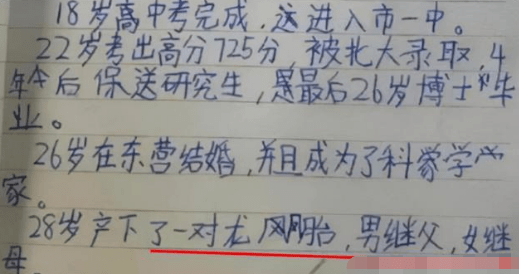 18岁高中考完成,这进入市一中。
22岁考出高分725分,被北大录取,4
年后保送研究生,最后26岁博士毕
业。
26岁在东营结婚,并且成为了科学
家。
28岁产下了一对龙凤胎,男继父,女继
母